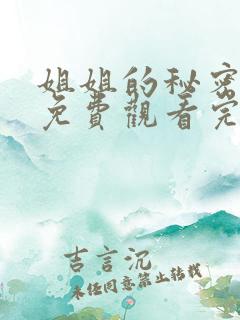 姐姐的秘密
免費觀看完
吉言沉
未经同意禁止转载